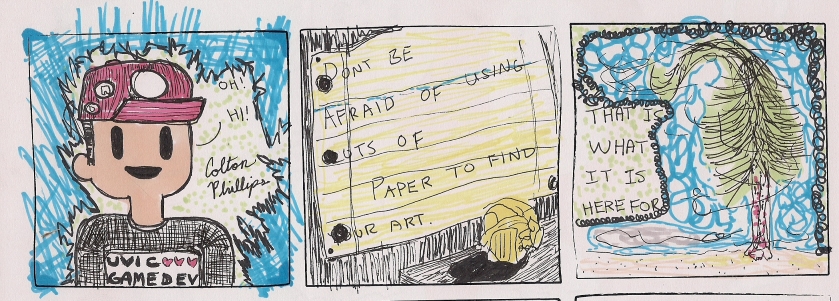 OH!
HI!
Colton
Phillips
UVIC
GAMEDEV
DONT BE
AFRAID OF USING
OUTS OF
PAPER TO FIND
OUR ART.
THAT IS
WHAT
IT IS
HERE FOR